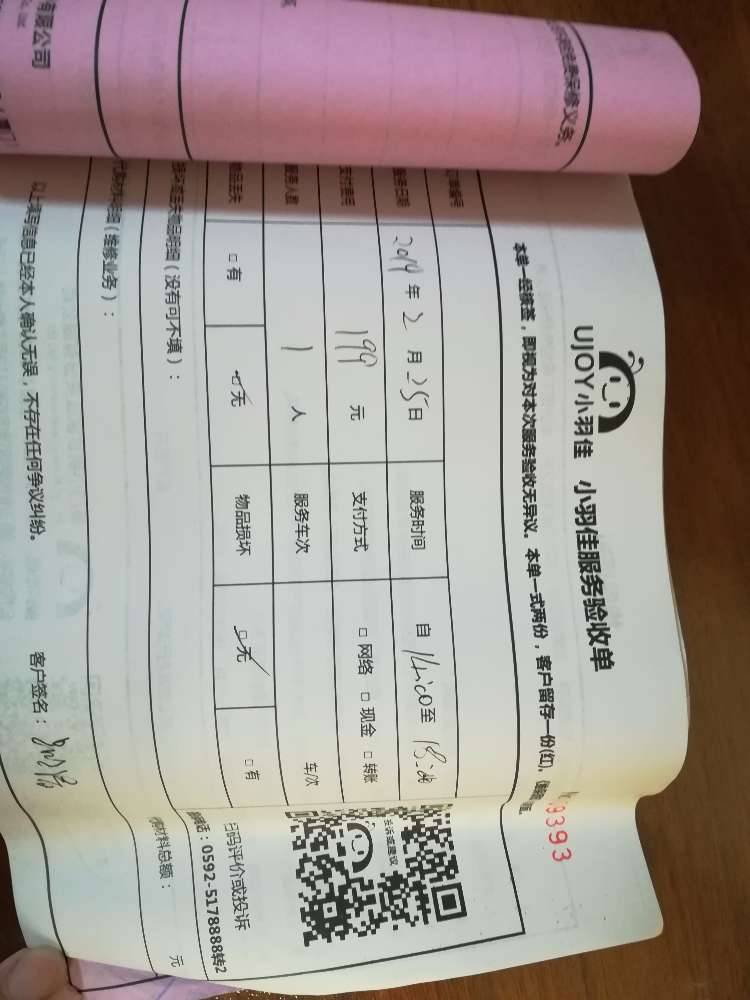 有限公司
UJOY小羽佳 小羽佳服务验收单
9393
本单一经接签，即视为对本次服务验收无异议。本单一式两份，客户留存一份(红)，
服务日期 2019年2月25日 服务时间 自14:00至18:00
支付费用 199元 支付方式 □网络 □现金 □转账
服务人数 1人 服务车次 车次
物品丢失 □有 □无 物品损坏 □无 □有
投诉或建议
扫码评价或投诉
电话：0592-5178888转2
物品明细（没有可不填）：
材料明细（维修业务）：
材料总额： 元
以上填写信息已经本人确认无误，不存在任何争议纠纷。 客户签名：